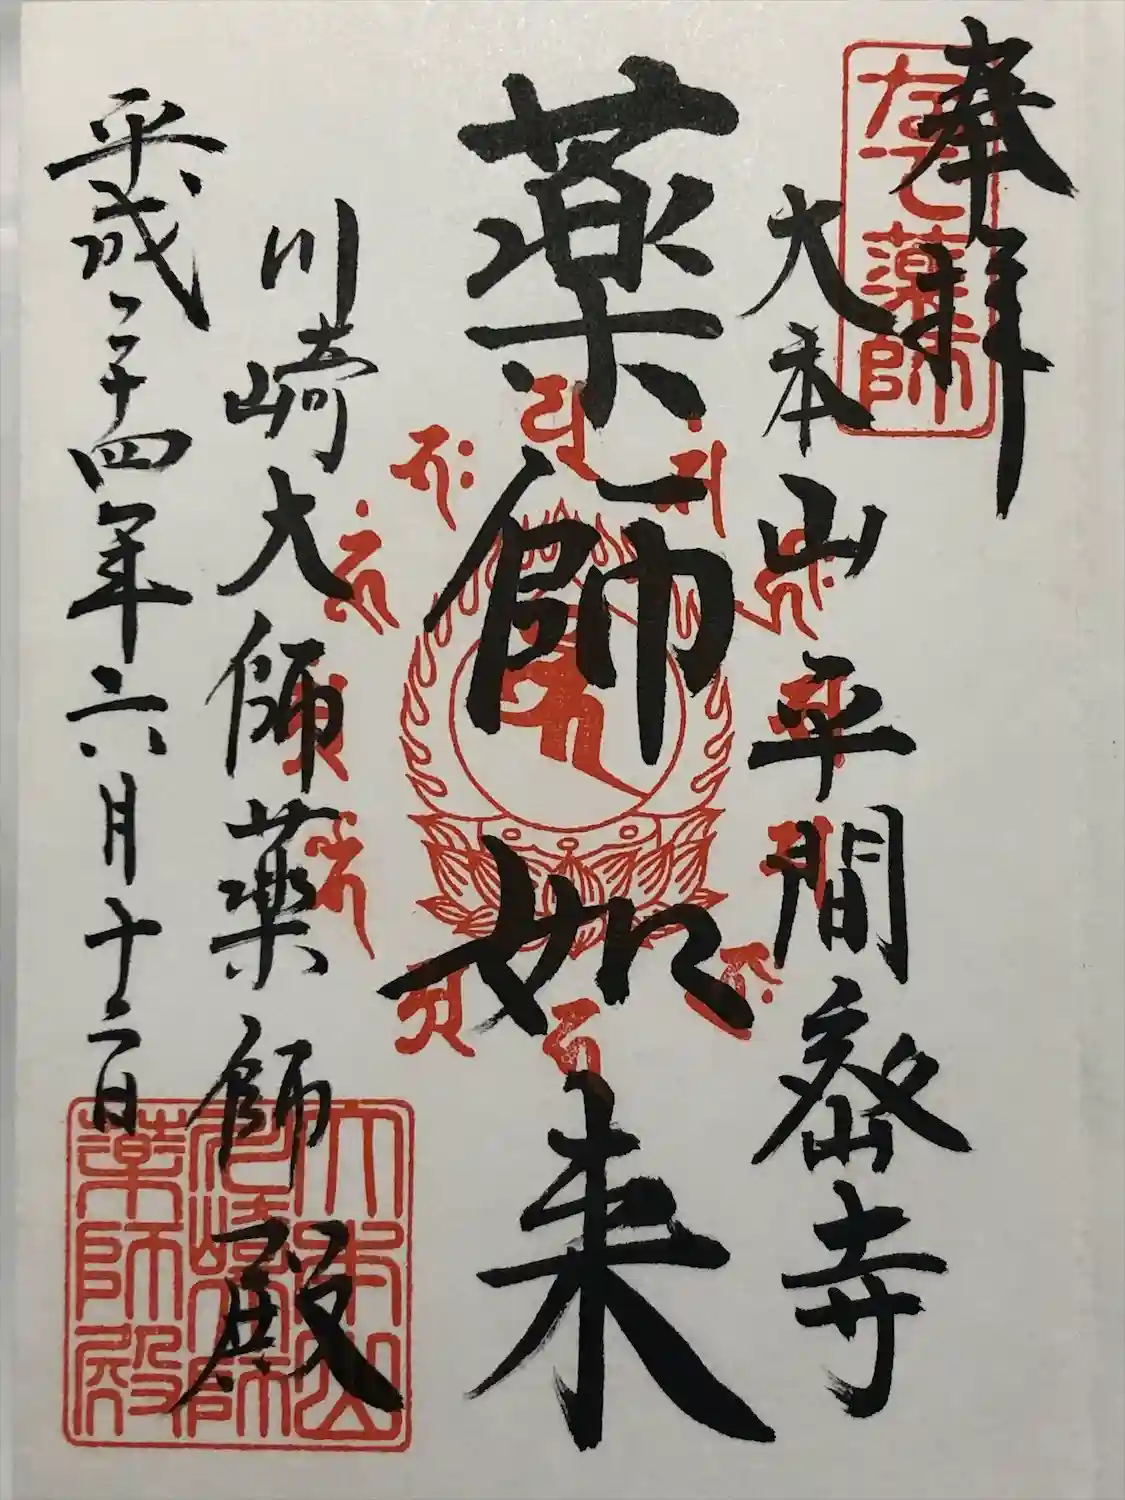 奉拝
なで薬師
大本山平間密寺
薬師如来
川崎大師薬師殿
平成二十四年六月十二日
大本山
川崎大師
薬師殿